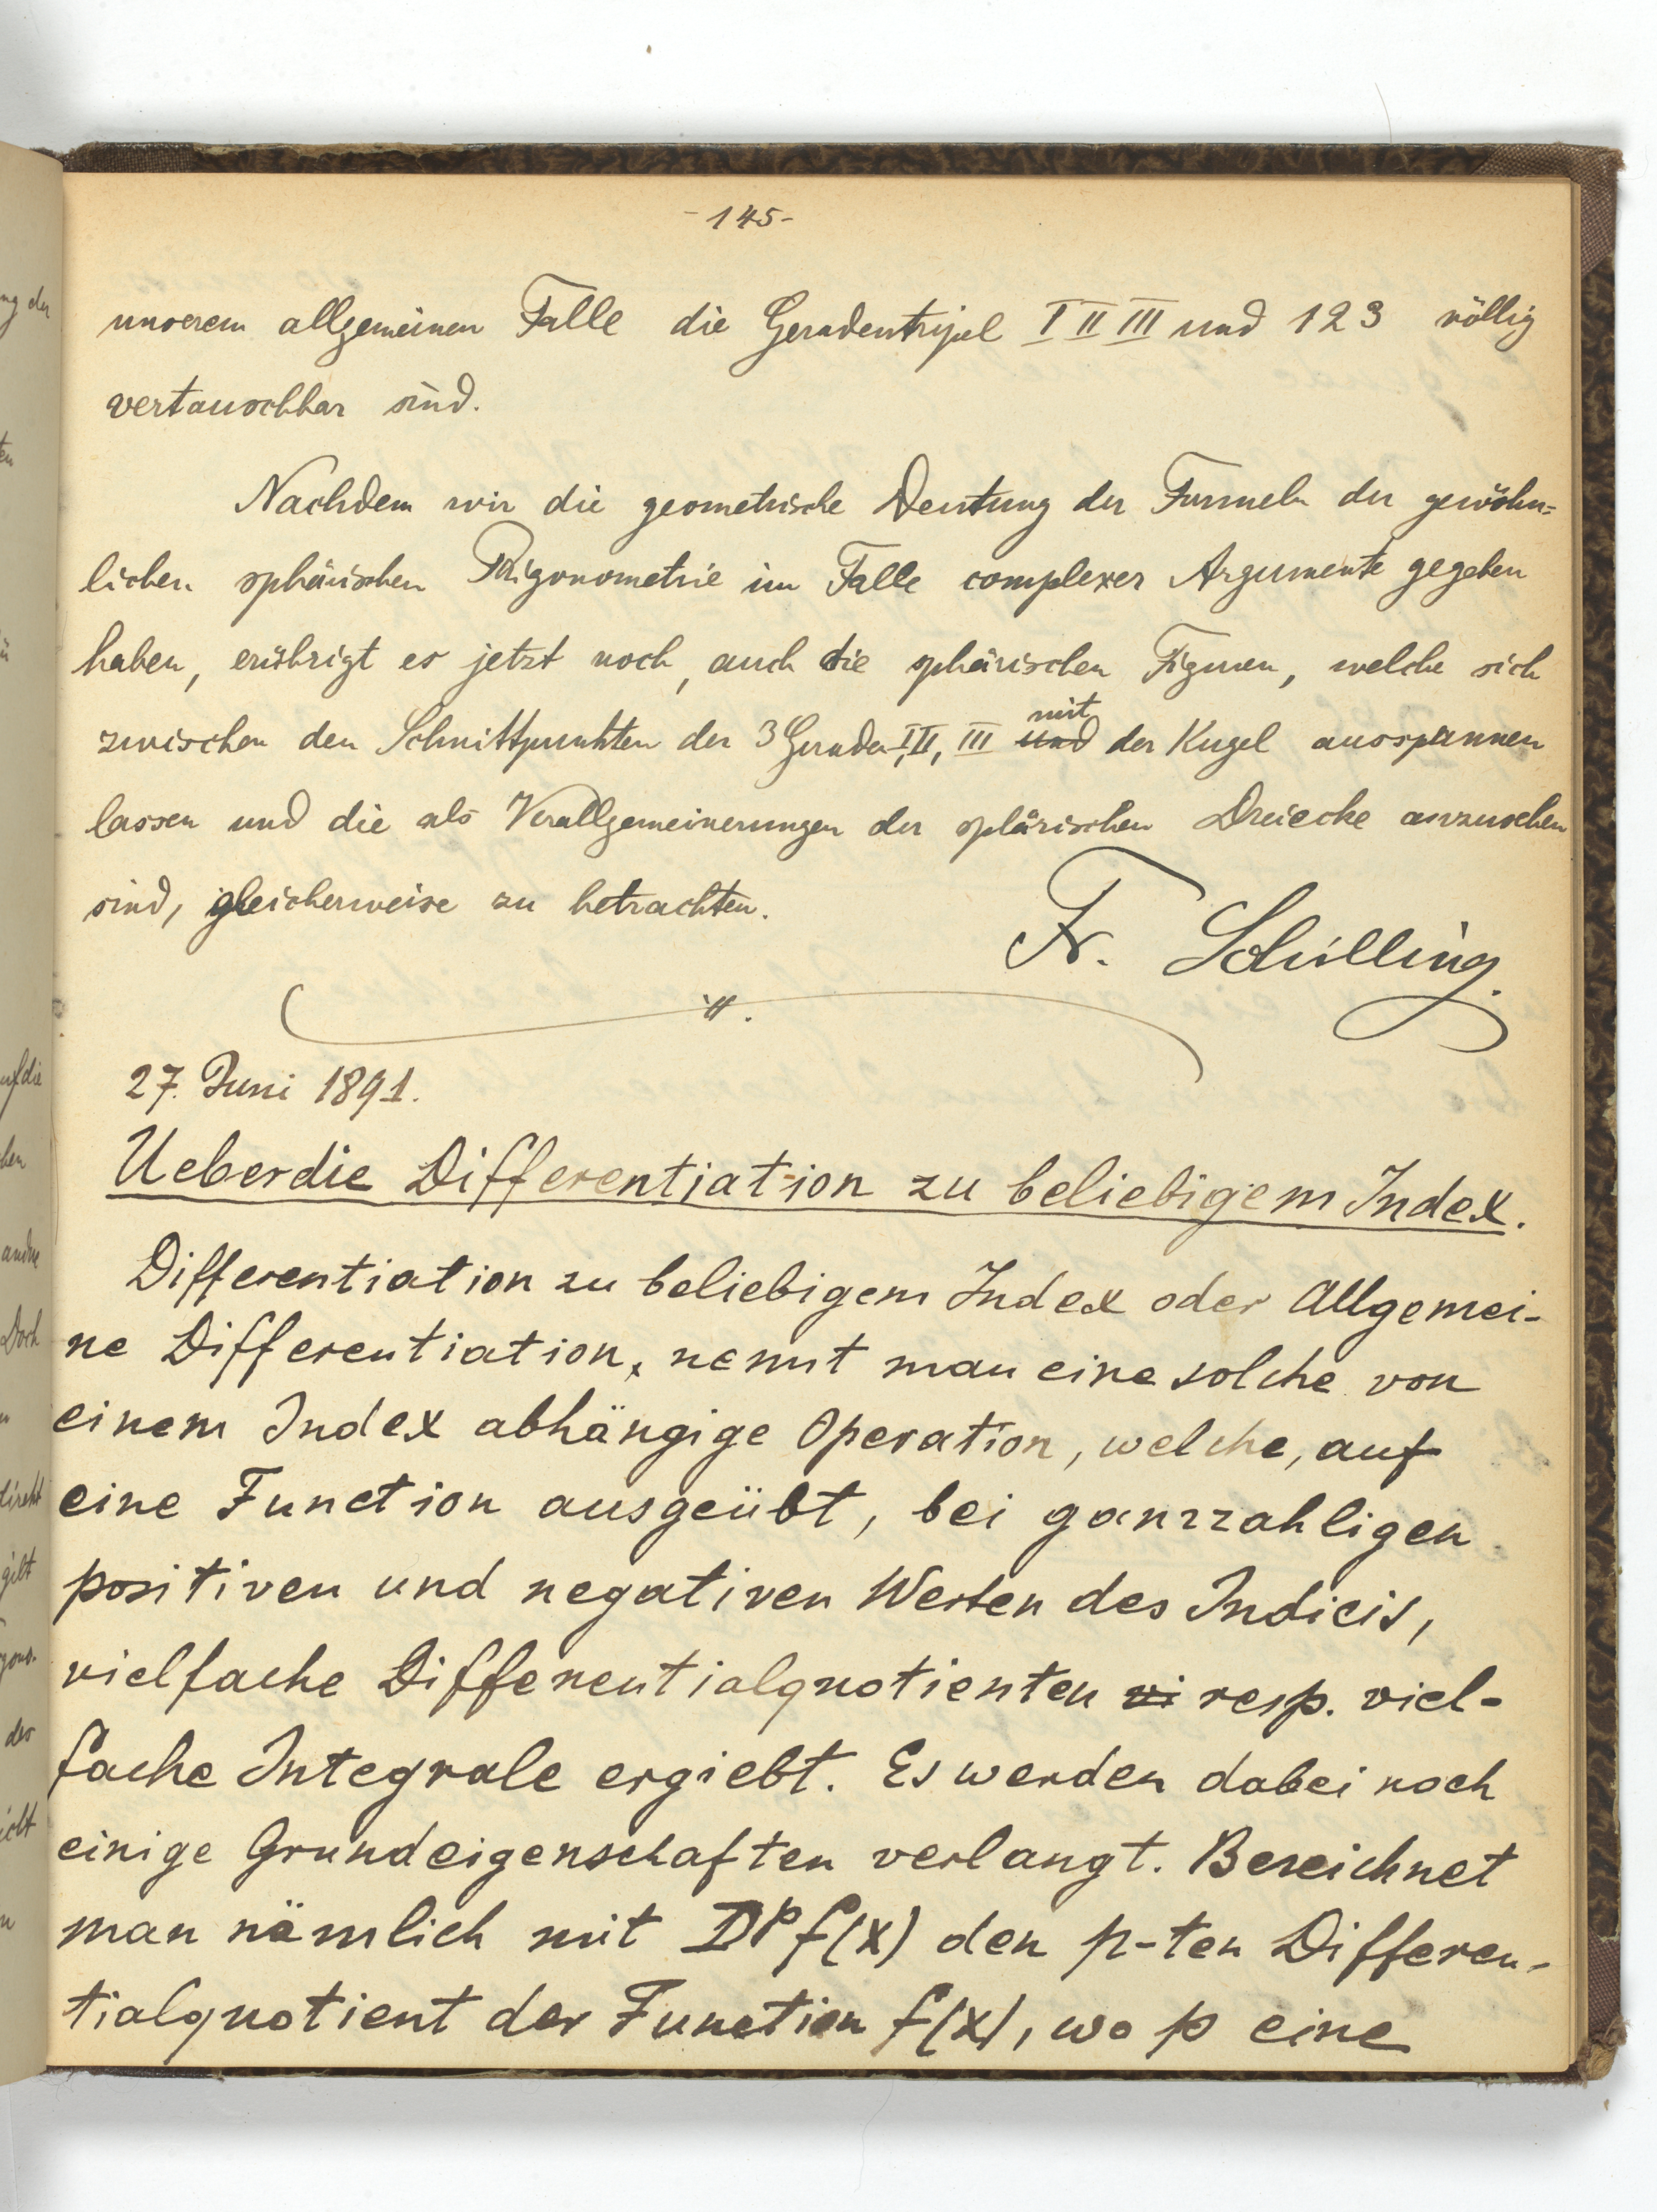 -145-
unserem allgemeinen Falle die Geradentripel I II III und 123 völlig
vertauschbar sind.
Nachdem wir die geometrische Deutung der Formeln der gewöhn=
lichen sphärischen Trigonometrie im Falle complexer Argumente gegeben
haben, erübrigt es jetzt noch, auch die sphärischen Figuren, welche sich
zwischen den Schnittpunkten der 3 Geraden I, II, III und mit der Kugel ausspannen
lassen und die als Verallgemeinerungen der sphärischen Dreiecke anzusehen
sind, gleicherweise zu betrachten.
Fr. Schilling.
27. Juni 1891.
Ueber die Differentiation zu beliebigem Index.
Differentiation zu beliebigem Index oder Allgemei-
ne Differentiation, nennt man eine solche von
einem Index abhängige Operation, welche, auf
eine Function ausgeübt, bei ganzzahligen
positiven und negativen Werten des Indicis,
vielfache Differentialquotienten vi resp. viel-
fache Integrale ergiebt. Es werden dabei noch
einige Grundeigenschaften verlangt. Bezeichnet
man nämlich mit D^p f(x) den p-ten Differen-
tialquotient der Function f(x), wo p eine